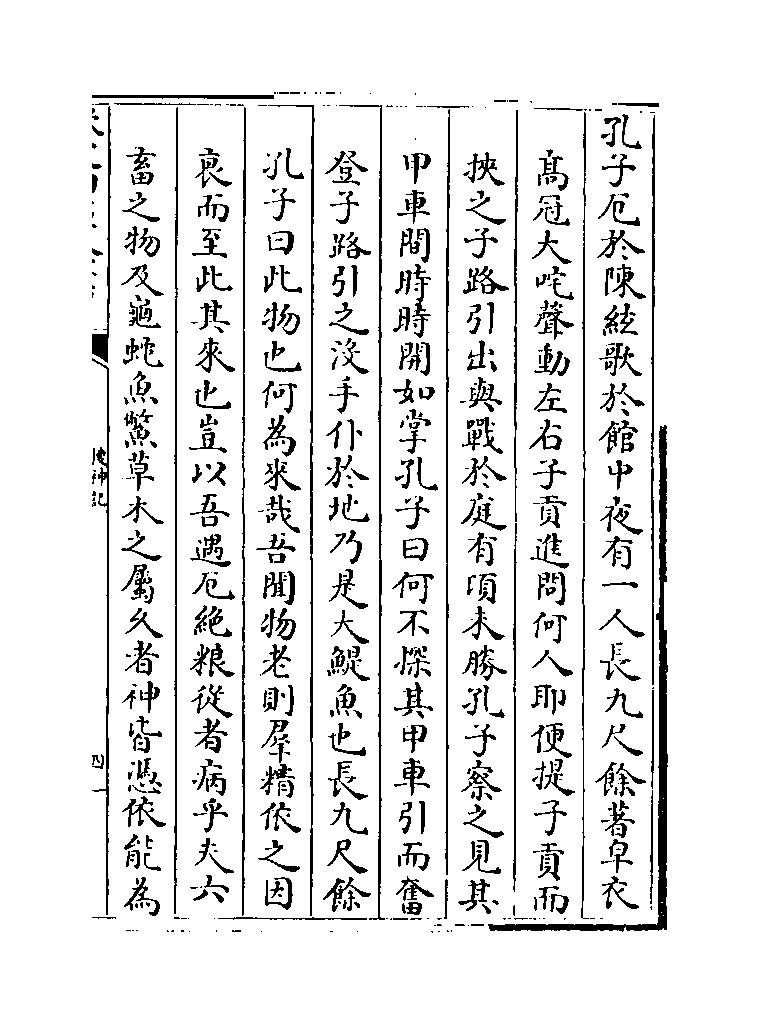 孔子厄於陳絃歌於館中夜有一人長九尺餘著皁衣
髙冠大咤聲動左右子貢進問何人耶便提子貢而
挾之子路引出與戰於庭有頃未勝孔子察之見其
甲車間時時開如掌孔子曰何不探其甲車引而奮
登子路引之沒手仆於地乃是大鯷魚也長九尺餘
孔子曰此物也何為來哉吾聞物老則羣精依之因
衰而至此其來也豈以吾遇厄絶粮從者病乎夫六
畜之物及龜蛇魚鱉草木之屬久者神皆憑依能為
搜神記